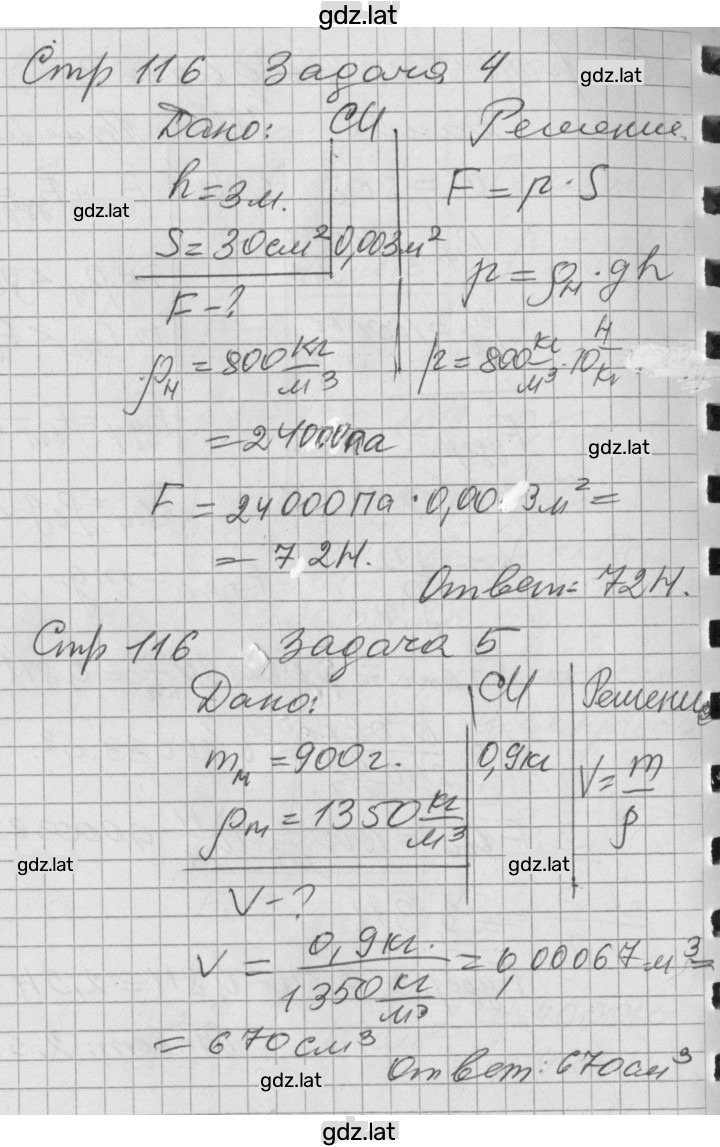 gdz.lat
Стр 116 Задача 4
gdz.lat
Дано: СИ Решение.
h = 3 м. F = p · S
gdz.lat
S = 30 см² 0,003 м²
p = ρн · gh
F - ?
ρн = 800 кг/м³ p = 800 кг/м³ · 10 Н/кг
= 24000 Па
gdz.lat
F = 24000 Па · 0,003 м² =
= 72 Н.
Ответ: 72 Н.
Стр 116 Задача 5
Дано: СИ Решение
mм = 900 г. 0,9 кг V = m/ρ
ρм = 1350 кг/м³
gdz.lat gdz.lat
V - ?
V = 0,9 кг. / 1350 кг/м³ = 0,00067 м³ =
= 670 см³
Ответ: 670 см³
gdz.lat
gdz.lat